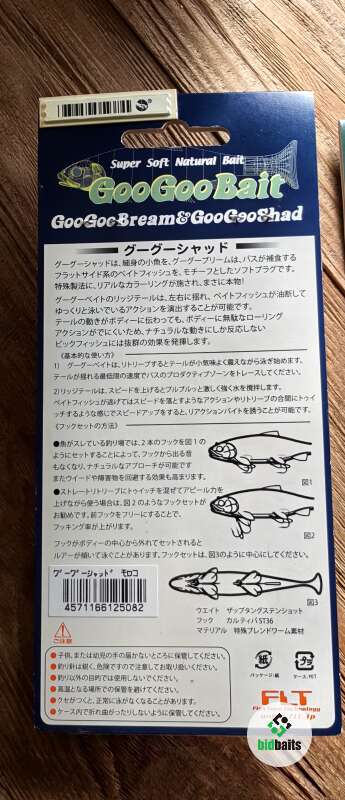 Super Soft Natural Bait
GooGooBait
GooGooBream&GooGooShad
グーグーシャッド
グーグーシャッドは、細身の小魚を、グーグーブリームは、バスが捕食する
フラットサイド系のベイトフィッシュを、モチーフとしたソフトプラグです。
特殊製法に、リアルなカラーリングが施され、まさに本物!
グーグーベイトのリッジテールは、左右に揺れ、ベイトフィッシュが油断して
ゆっくりと泳いでいるアクションを演出することが可能です。
テールの動きがボディーに伝わっても、ボディーに無駄なローリング
アクションがでにくいため、ナチュラルな動きにしか反応しない
ビックフィッシュには抜群の効果を発揮します。
《基本的な使い方》
1) グーグーベイトは、リトリーブするとテールが小気味よく震えながら泳ぎ始めます。
テールが揺れる最低限の速度でバスのプロダクティブゾーンをトレースしてください。
2)リッジテールは、スピードを上げるとブルブルッと激しく強く水を撹拌します。
ベイトフィッシュが逃げてはスピードを落とすようなアクションやリトリーブの合間にトゥイ
ッチするような感じでスピードアップをすると、リアクションバイトを誘うことが可能です。
《フックセットの方法》
●魚がスレている釣り場では、2本のフックを図1の
ようにセットすることによって、フックから出る音
もなくなり、ナチュラルなアプローチが可能です
またウイードや障害物を回避する効果も高まります。
図1
●ストレートリトリーブにトゥイッチを混ぜてアピール力を
上げながら使う場合は、図2のようなフックセットが
お勧めです。前フックをフリーにすることで、
フッキング率が上がります。
図2
フックがボディーの中心から外れてセットされると
ルアーが傾いて泳ぐことがあります。フックセットは、図3のように中心にしてください。
図3
グーグーシャッド モロコ
4571166125082
ウエイト ザップタングステンショット
フック カルティバST36
マテリアル 特殊ブレンドワーム素材
ご注意
●子供、または幼児の手の届かないところに保管してください。
●釣り針は鋭く、危険ですので注意してお取り扱いください。
●釣り以外の目的では使用しないでください。
●高温となる場所での保管を避けてください。
●クセがつくと、正常に泳がなくなることがあります。
●ケース内で折れ曲がったりしないように保管してください。
紙
パッケージ:紙
プラ
ケース:PET
FLT
bidbaits